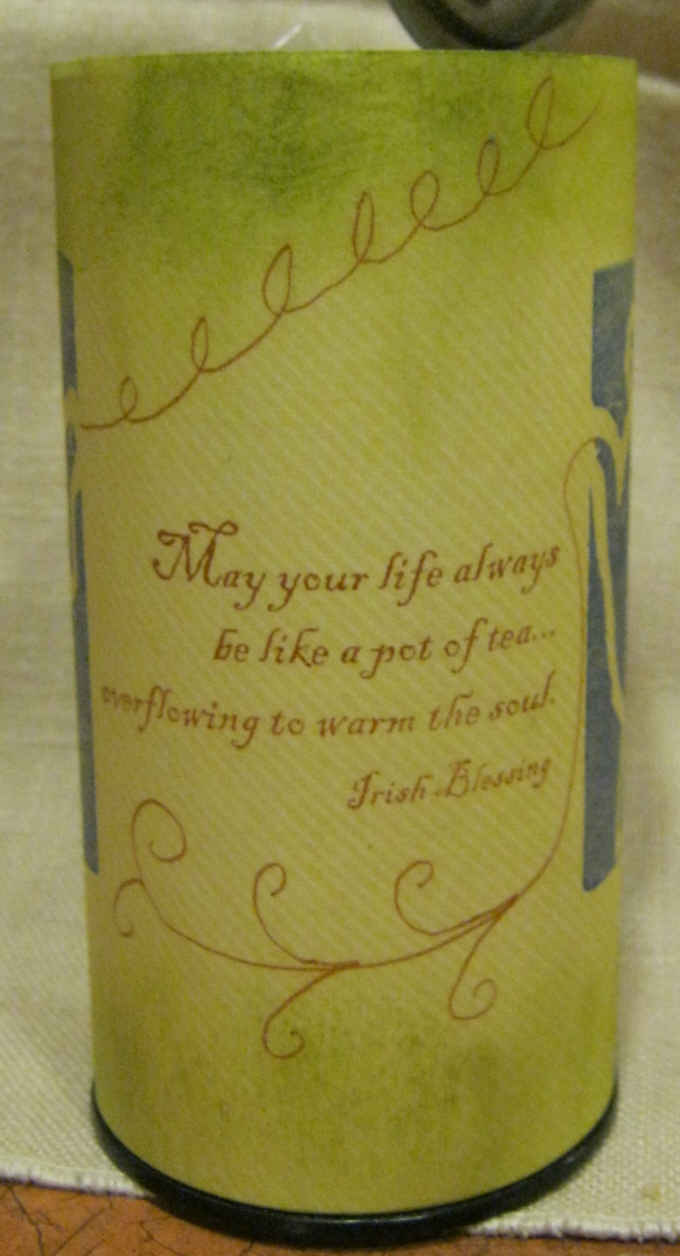 May your life always
be like a pot of tea...
overflowing to warm the soul.
Irish Blessing